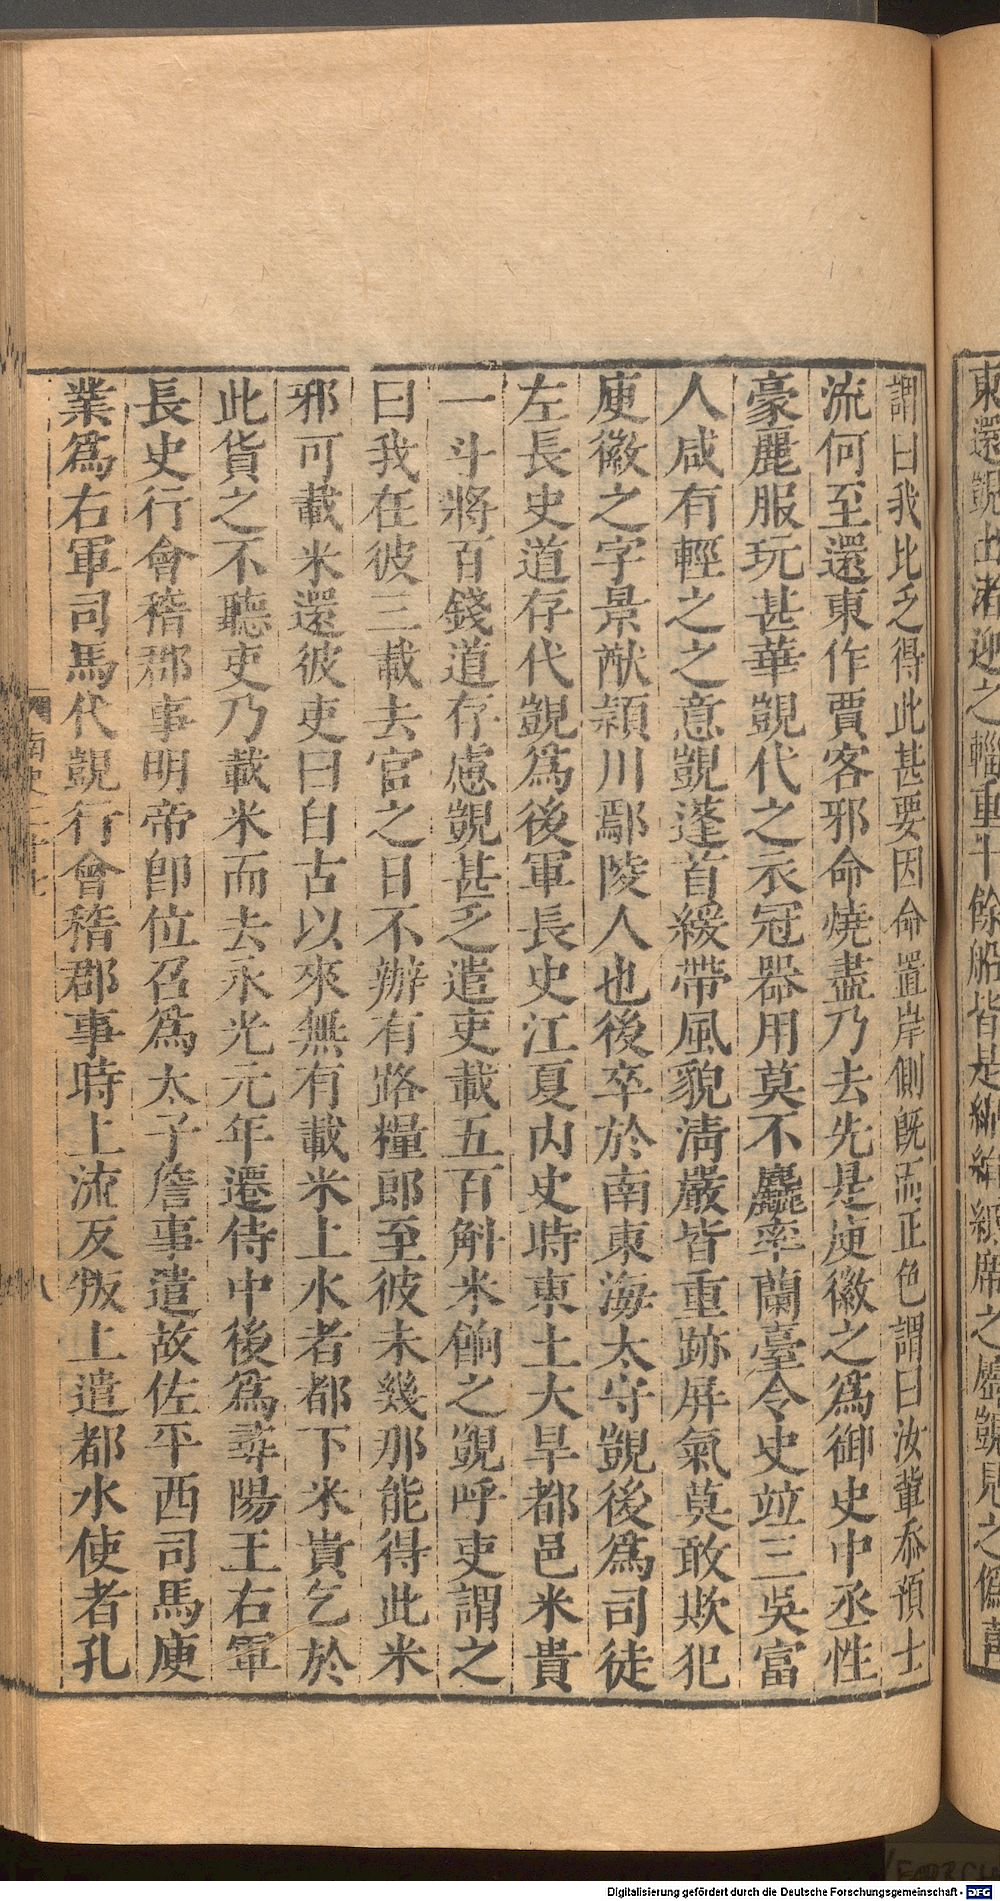 東還覬出渚迎之輜重十餘船皆是綿絹紙席之屬覬見之僞喜
謂曰我比乏得此甚要因命置岸側旣而正色謂曰汝輩忝預士
流何至還東作賈客邪命燒盡乃去先是庾徽之爲御史中丞性
豪麗服玩甚華覬代之衣冠器用莫不麤率蘭臺令史竝三吳富
人咸有輕之之意覬蓬首緩帶風貌淸嚴皆重跡屛氣莫敢欺犯
庾徽之字景猷潁川鄢陵人也後卒於南東海太守覬後爲司徒
左長史道存代覬爲後軍長史江夏內史時東土大旱都邑米貴
一斗將百錢道存慮覬甚乏遣吏載五百斛米餉之覬呼吏謂之
曰我在彼三載去官之日不辦有路糧郎至彼未幾那能得此米
邪可載米還彼吏曰自古以來無有載米上水者都下米貴乞於
此貨之不聽吏乃載米而去永光元年遷侍中後爲尋陽王右軍
長史行會稽郡事明帝卽位召爲太子詹事遣故佐平西司馬庾
業爲右軍司馬代覬行會稽郡事時上流反叛上遣都水使者孔
南史二十七
八
Digitalisierung gefördert durch die Deutsche Forschungsgemeinschaft - DFG